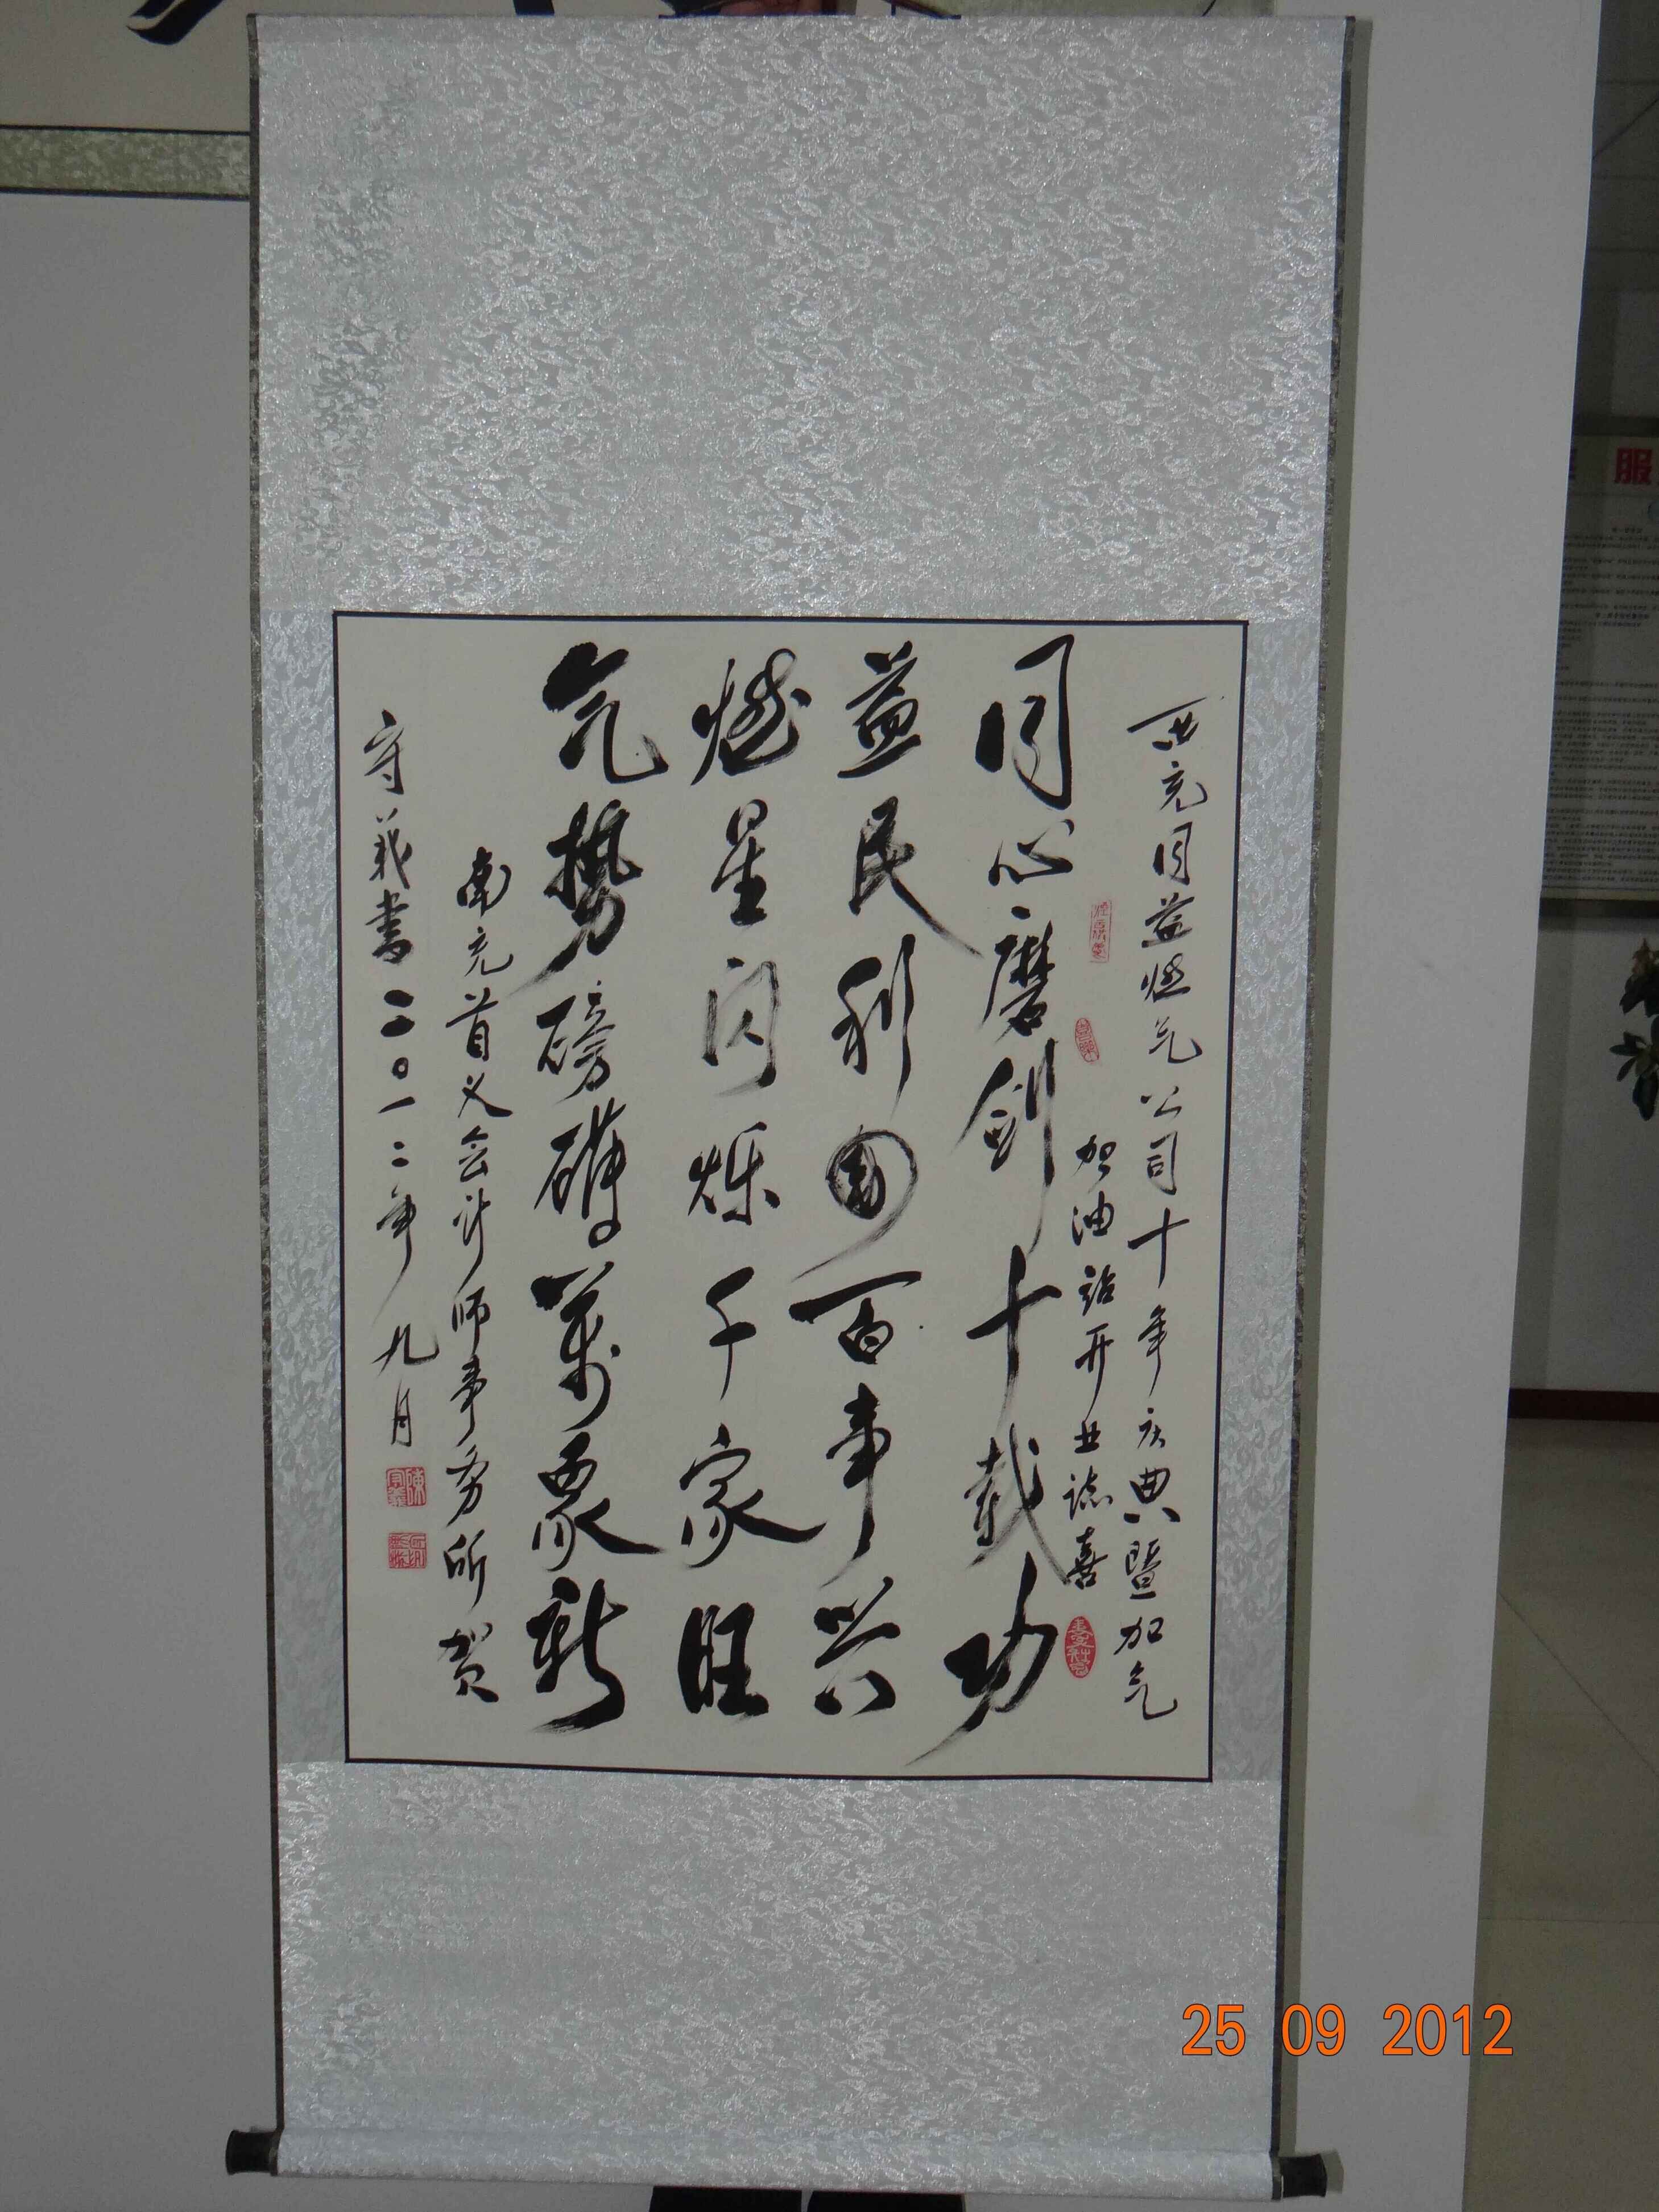 西充同益燃气公司十年庆典暨加气
加油站开业誌喜
同心磨剑十载功
益民利国百事兴
燃星闪烁千家旺
气势磅礴萬象新
南充首义会计师事务所贺
守義書二〇一二年九月
服
25 09 2012